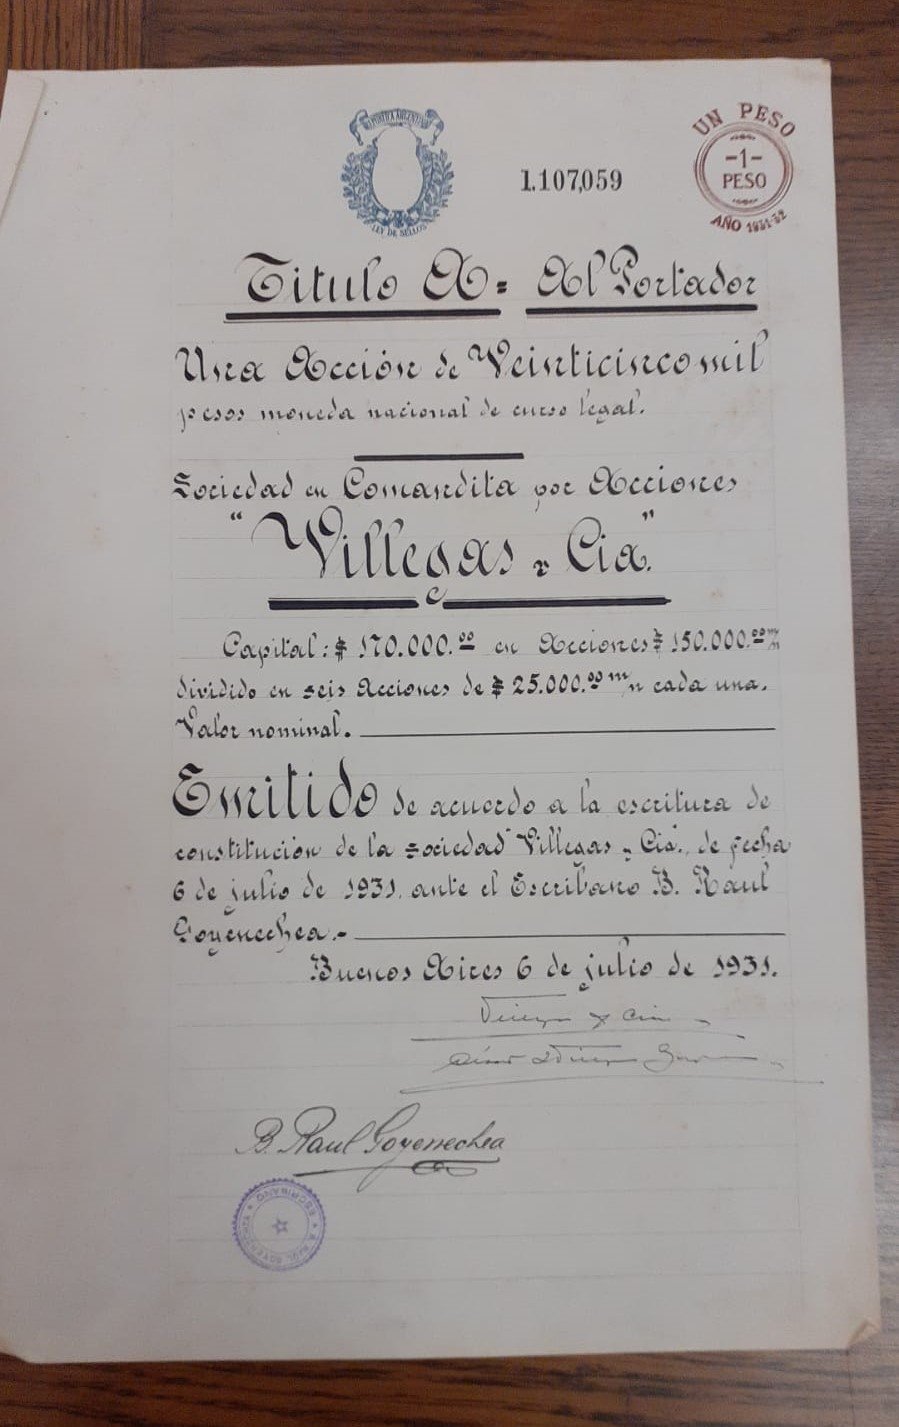 REPUBLICA ARGENTINA
LEY DE SELLOS
1.107,059
UN PESO
-1-
PESO
AÑO 1931-32
Titulo A= Al Portador
Una Acción de Veinticinco mil
pesos moneda nacional de curso legal.
Sociedad en Comandita por Acciones
"Villegas y Cia"
Capital: $ 170.000.00 en Acciones $ 150.000.00 m/n
dividido en seis Acciones de $ 25.000.00 m/n cada una.
Valor nominal.
Emitido de acuerdo a la escritura de
constitución de la sociedad Villegas y Cia., de fecha
6 de julio de 1931, ante el Escribano B. Raul
Goyenechea.-
Buenos Aires 6 de julio de 1931.
y Cia
B. Raul Goyenechea
B. RAUL GOYENECHEA
ESCRIBANO